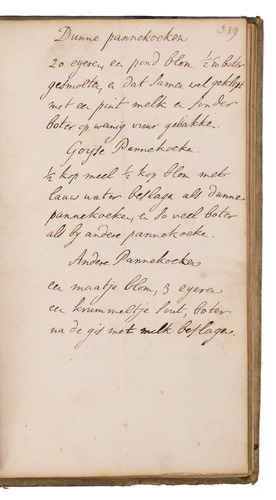 319
Dunne pannekoeken
20 eyeren, een pond blom, ½ ℔ boter
gesmolten, en dat samen wel geklopt
met een pint melk en sonder
boter op wünig vuur gebakke.
Goyse Pannekoeke
½ kop meel ½ kop blom met
lauw water beslage als dunne
pannekoeke, en so veel boter
als by andere pannekoeke.
Andere Pannekoeken
een maatje blom, 3 eyeren
een krummeltje sout, boter
na de gis met melk beslagen.